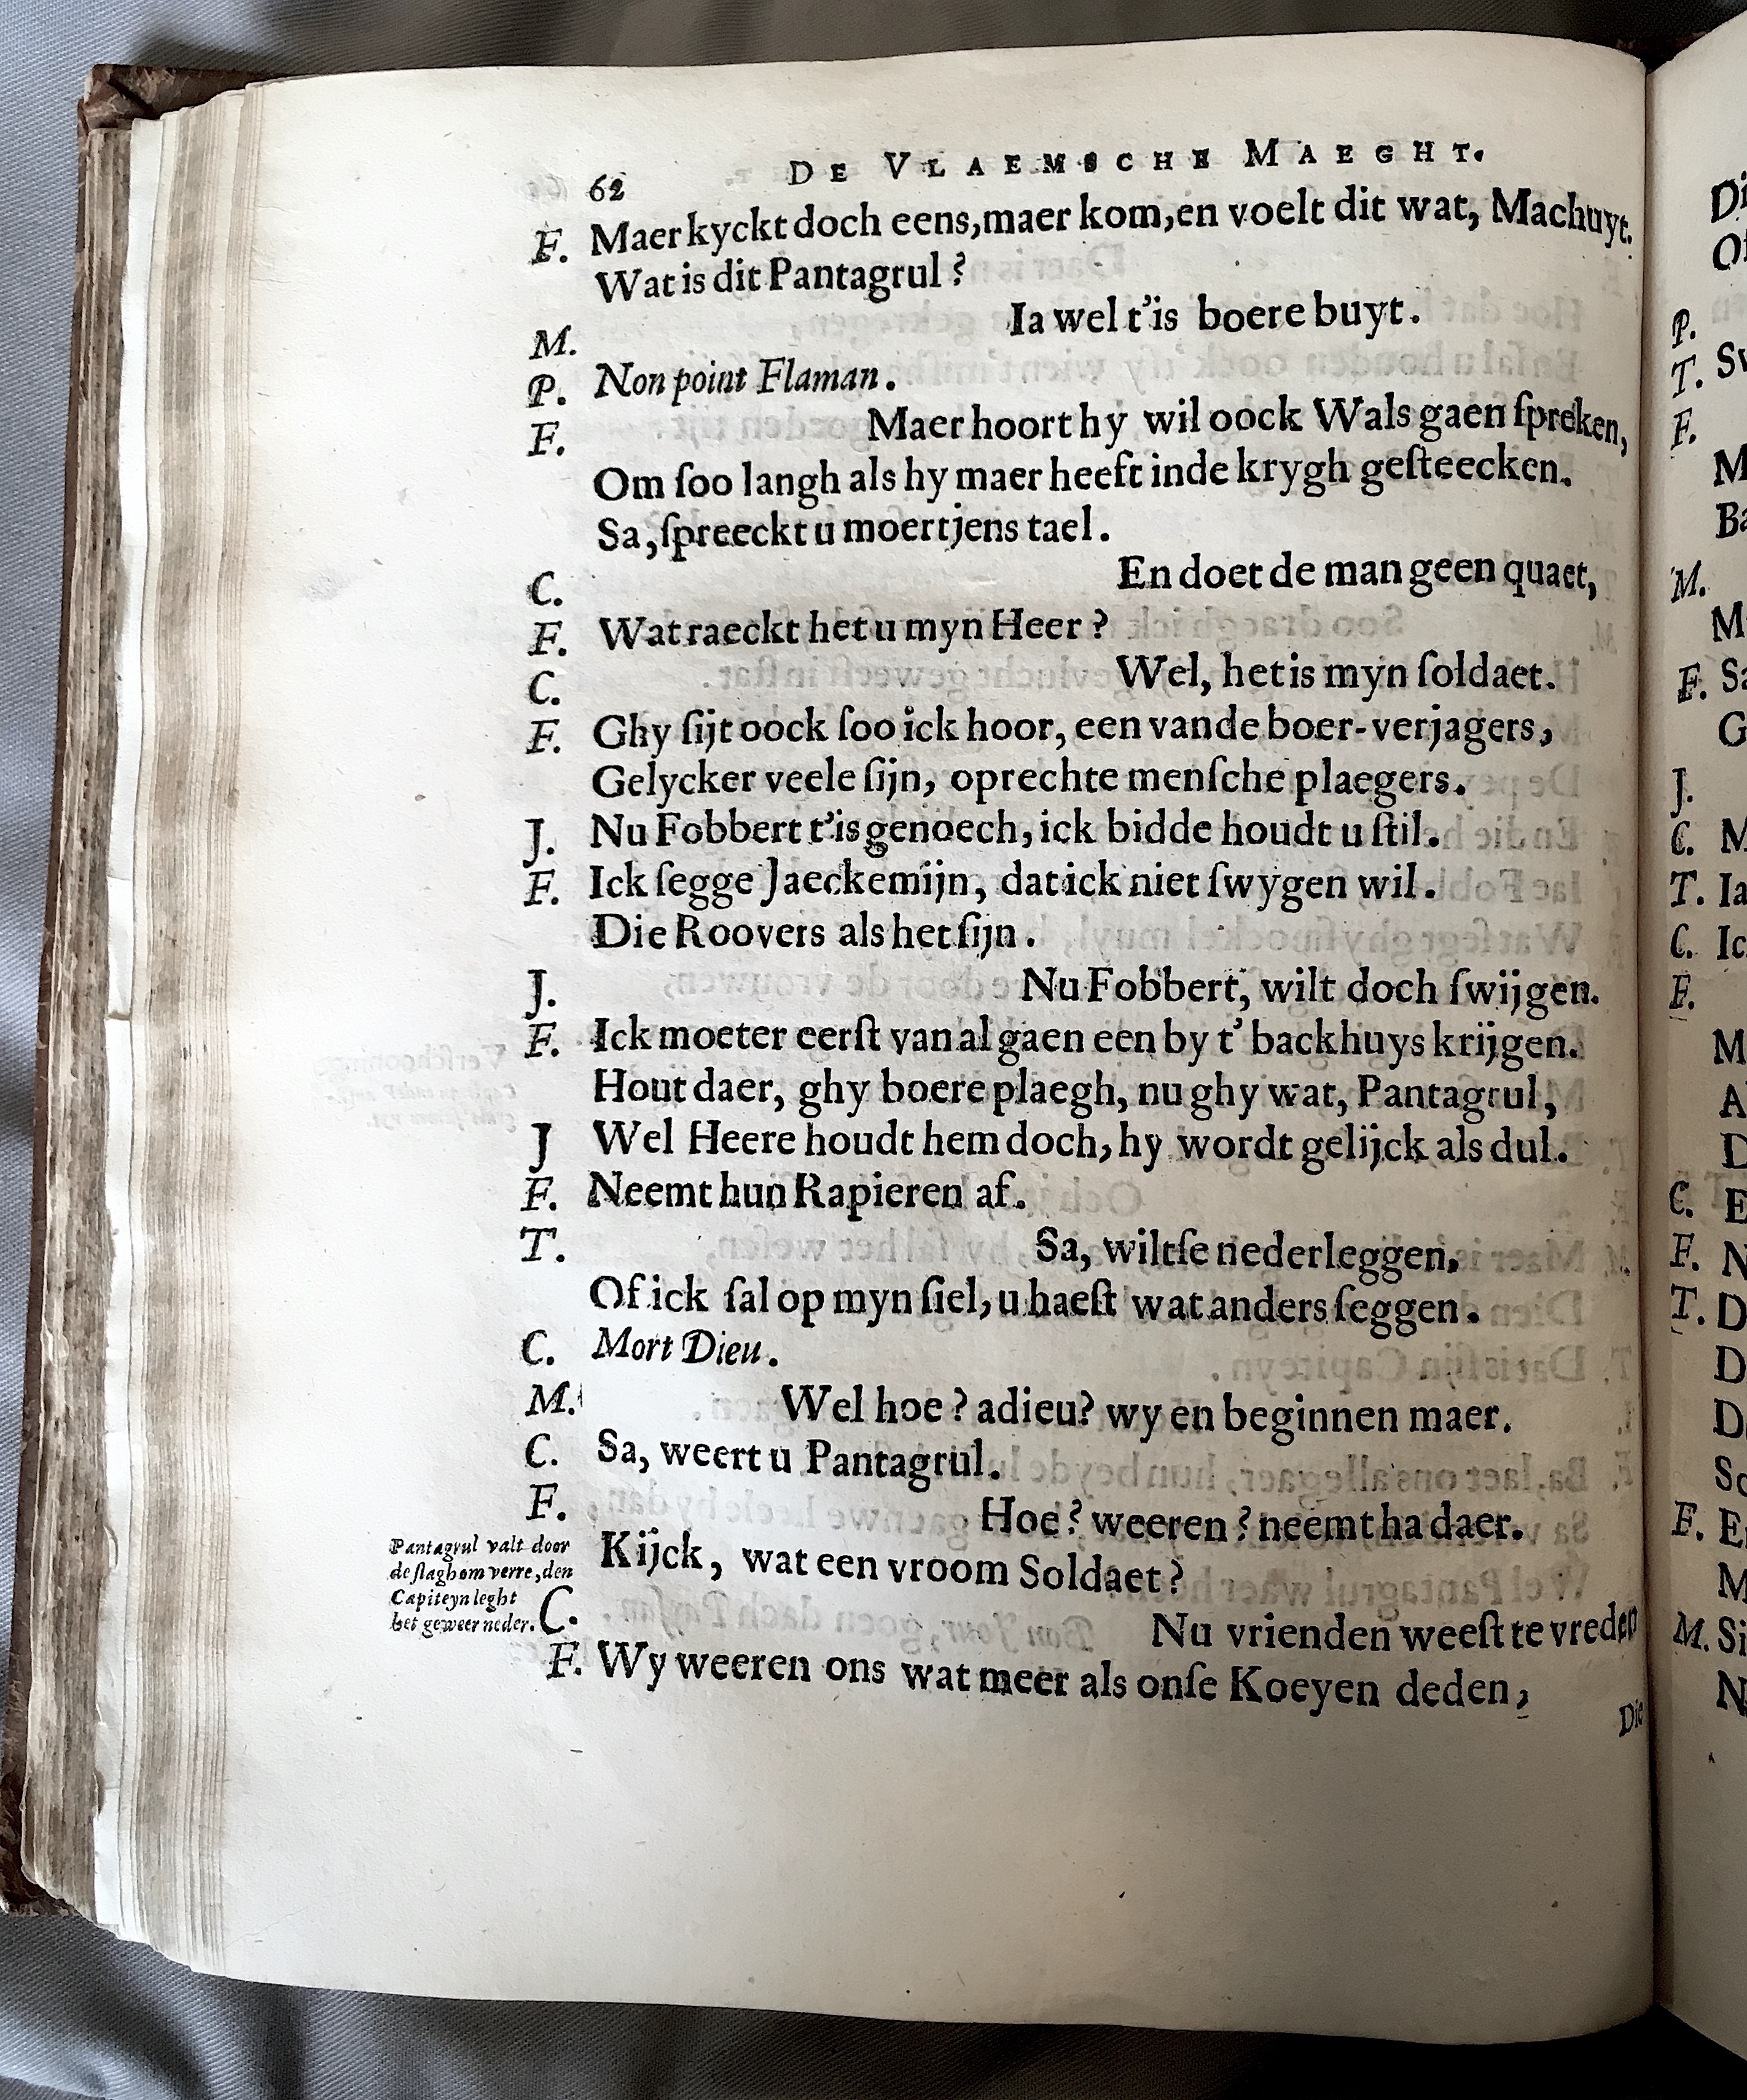 62 DE VLAEMSCHE MAEGHT.
F. Maer kyckt doch eens, maer kom, en voelt dit wat, Machuyt.
Wat is dit Pantagrul?
M. Ia wel t'is boere buyt.
P. Non point Flaman.
F. Maer hoort hy wil oock Wals gaen ſpreken,
Om ſoo langh als hy maer heeft inde krygh geſteecken.
Sa, ſpreeckt u moertjens tael.
C. En doet de man geen quaet,
F. Wat raeckt het u myn Heer?
C. Wel, het is myn ſoldaet.
F. Ghy ſijt oock ſoo ick hoor, een vande boer-verjagers,
Gelycker veele ſijn, oprechte menſche plaegers.
J. Nu Fobbert t'is genoech, ick bidde houdt u ſtil.
F. Ick ſegge Jaeckemijn, dat ick niet ſwygen wil.
Die Roovers als het ſijn.
J. Nu Fobbert, wilt doch ſwijgen.
F. Ick moeter eerſt van al gaen een by t' backhuys krijgen.
Hout daer, ghy boere plaegh, nu ghy wat, Pantagrul,
J Wel Heere houdt hem doch, hy wordt gelijck als dul.
F. Neemt hun Rapieren af.
T. Sa, wiltſe nederleggen,
Of ick ſal op myn ſiel, u haeſt wat anders ſeggen.
C. Mort Dieu.
M. Wel hoe? adieu? wy en beginnen maer.
C. Sa, weert u Pantagrul.
F. Hoe? weeren? neemt ha daer.
Kijck, wat een vroom Soldaet?
Pantagrul valt door
de ſlagh om verre, den
Capiteyn leght
het geweer neder.
C. Nu vrienden weeſt te vreden
F. Wy weeren ons wat meer als onſe Koeyen deden,
Die
P.
T.
F.
M.
F.
J.
C.
T. Ia
C.
F.
C.
F.
T.
F.
M.